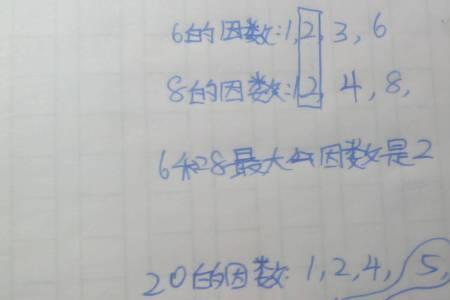 6的因数:1,2,3,6
8的因数:1,2,4,8,
6和8最大公因数是2
20的因数:1,2,4,5,